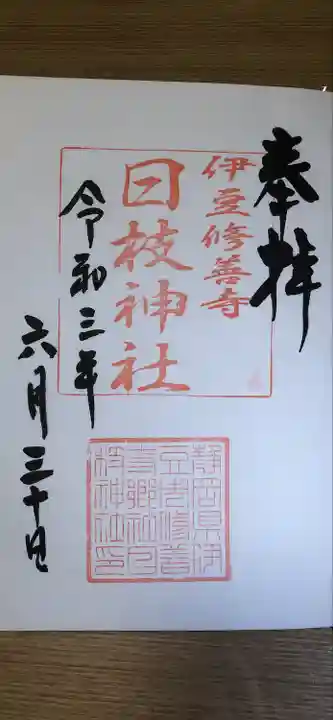 奉拝
伊豆修善寺
日枝神社
令和三年
六月三十日
静岡県伊
豆市修善
寺鄉社日
枝神社印